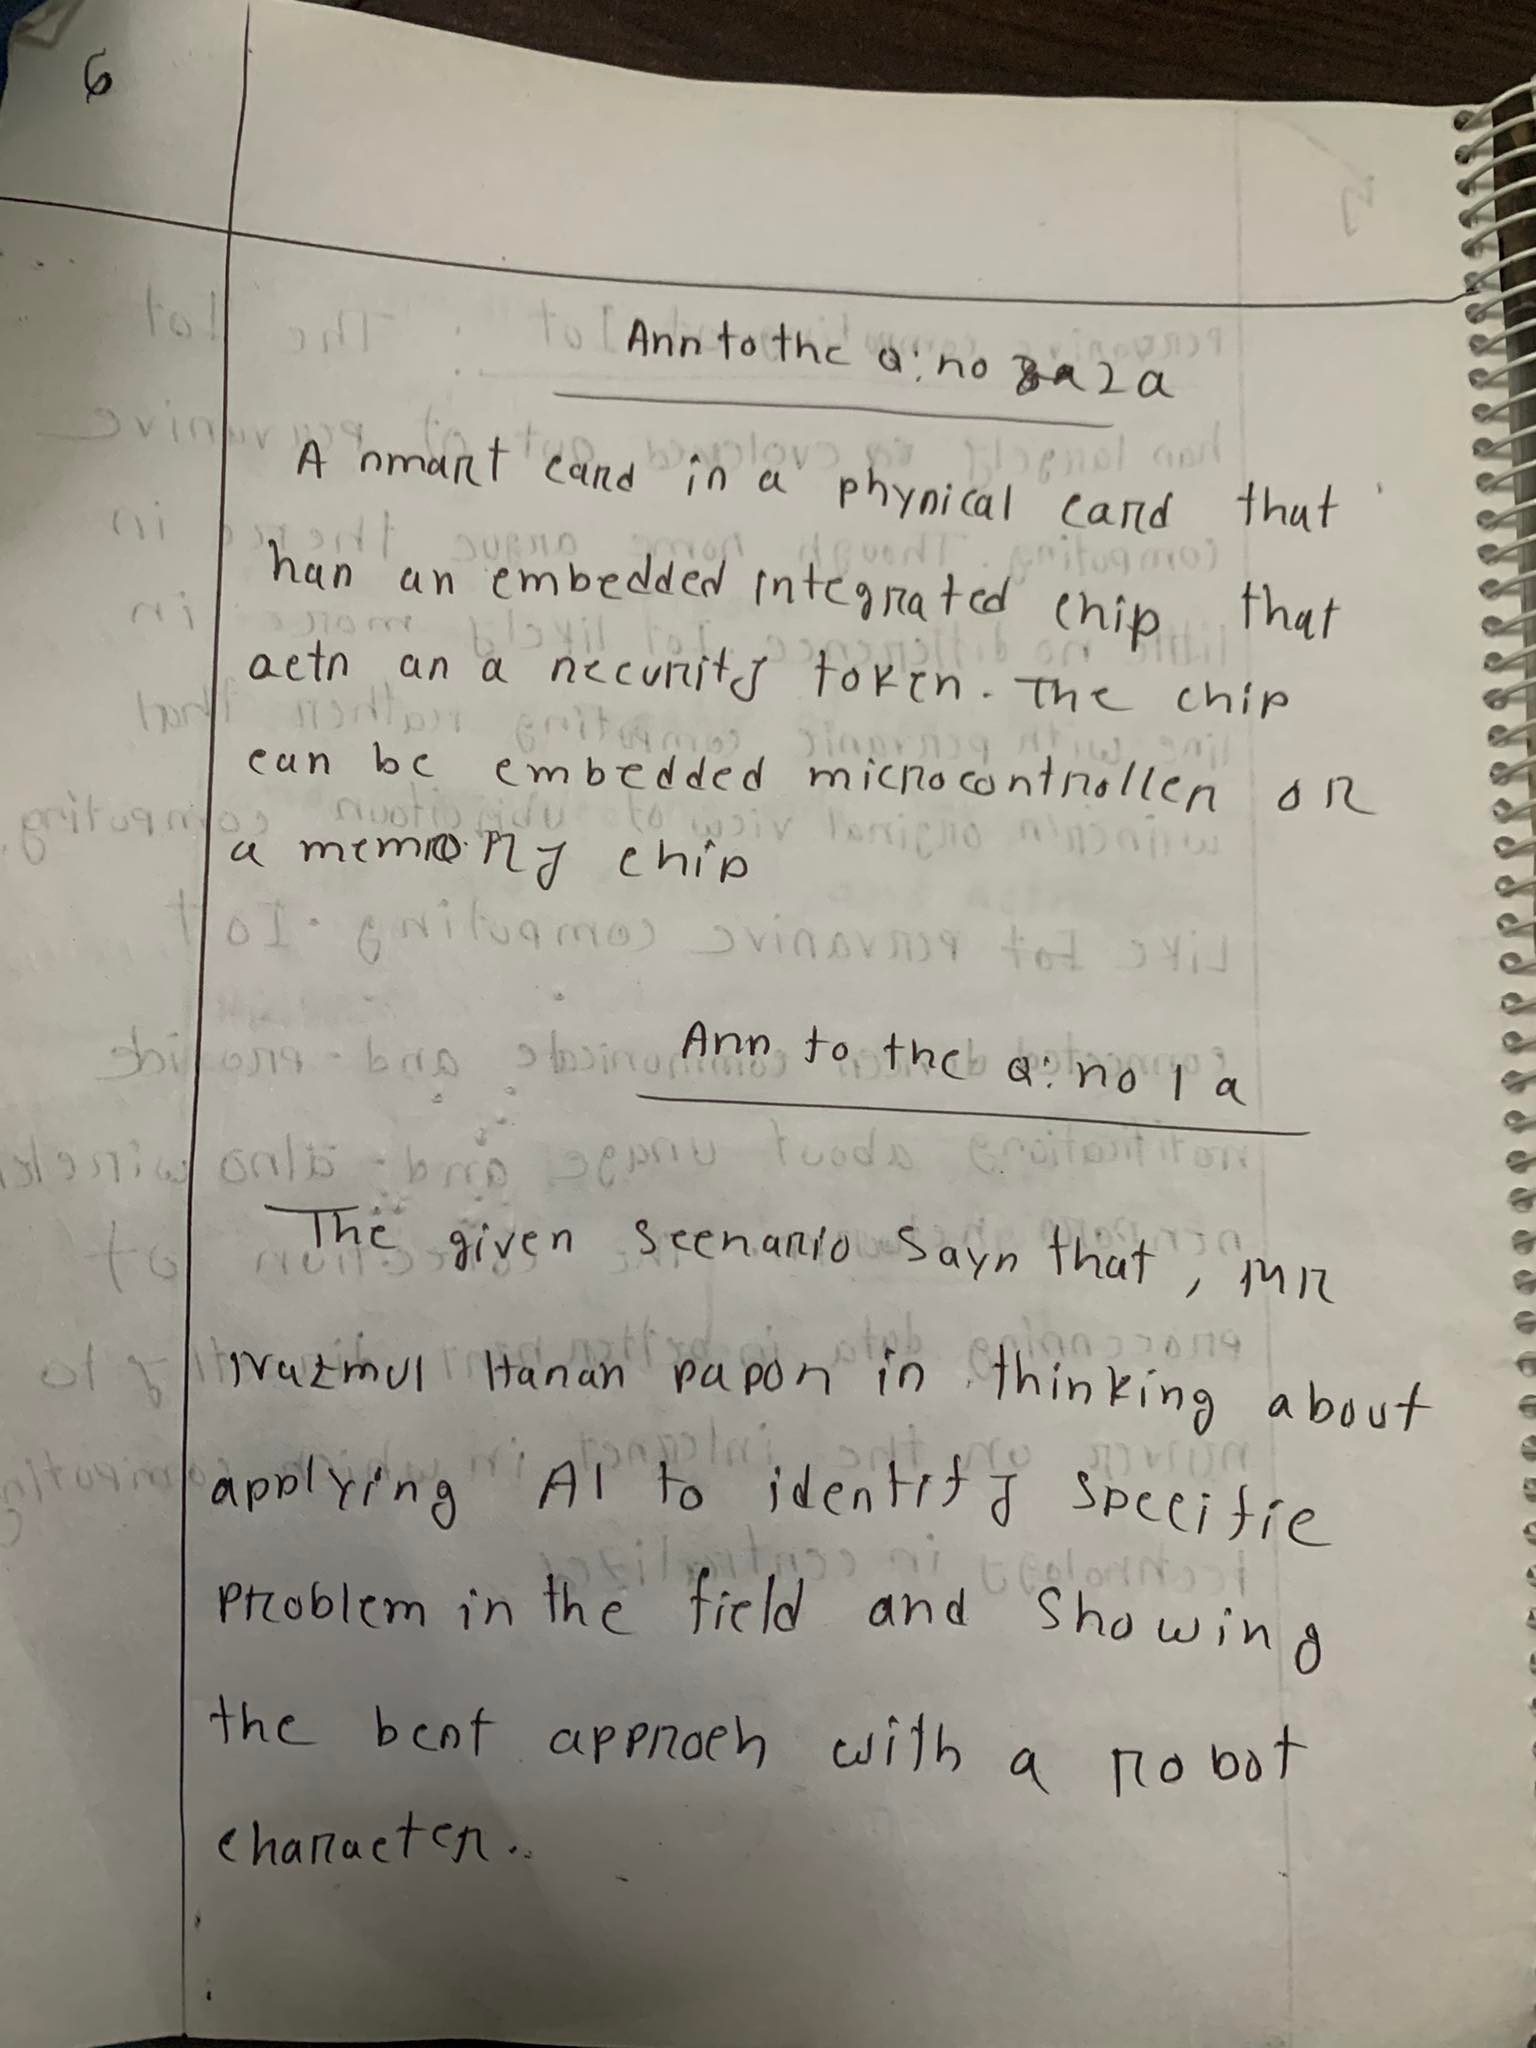 6
Ans to the Q: no 2 a
A smart card is a physical card that
has an embedded integrated chip that
acts as a security token. The chip
can be embedded microcontroller or
a memory chip
Ans to the Q: no 1 a
The given Scenario Says that, MR
Nazmul Hasan papon is thinking about
applying AI to identify Specific
Problem in the field and Showing
the best approch with a robot
character.